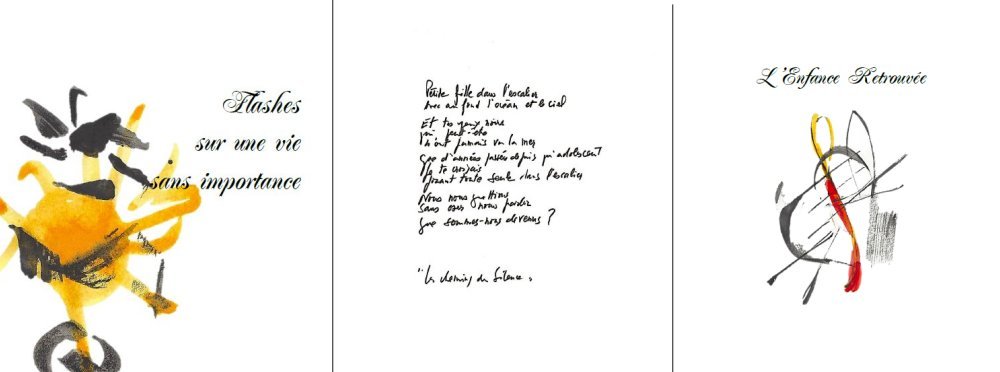 Flashes
sur une vie
sans importance
Petite fille dans l'escalier
avec au fond l'océan et le ciel
Et tes yeux noirs
qui peut-être
n'ont jamais vu la mer
Que d'années passées depuis qu'adolescent
Je te croisais
Jouant toute seule dans l'escalier
Nous nous quittions
Sans oser nous parler
Que sommes-nous devenus ?
"Les chemins du Silence"
L'Enfance Retrouvée